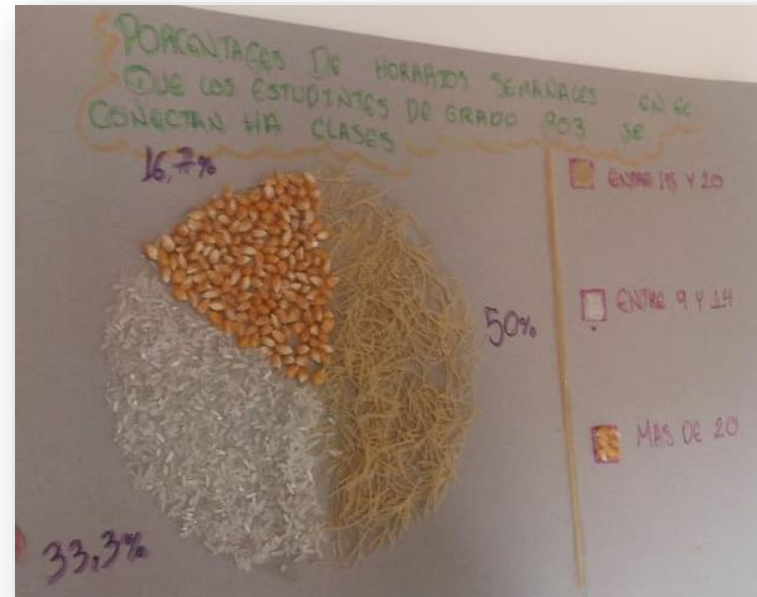 PORCENTAGES DE HORARIOS SEMANALES EN EL
QUE LOS ESTUDINTES DE GRADO 903 SE
CONECTAN HA CLASES
16,7%
50%
33,3%
ENTRE 15 Y 20
ENTRE 9 Y 14
MAS DE 20